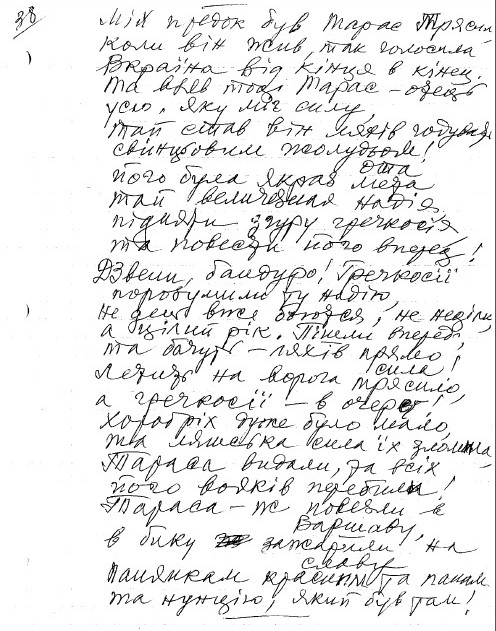 38
Мій предок був Тарас Трясило
коли він жив, так голосила
Вкраїна від кінця в кінець.
Та ввев тоді Тарас – отець
усю, яку міг силу,
тай став він ляхів годувати
свинцьовим жолудьом!
Його була якраз ота мета
тай величезная надія
підняти згуру гречкосія
та повести його вперед!
Дзвени, бандуро! Гречкосії
порозумили ту надію,
не день вже бʼються, не неділю,
а цілий рік. Пішли вперед,
та бачуть – ляхів прямо сила!
Летить на ворога Трясило,
а гречкосії – в очерет!
Хоробріх дуже було мало,
та ляшська сила їх зломила,
Тараса видали, та всіх
його вояків перебили!
Тараса – ж повезли в Варшаву,
в бику зажарили на славу
Панянкам красним та панам
та нунцію, який був там!